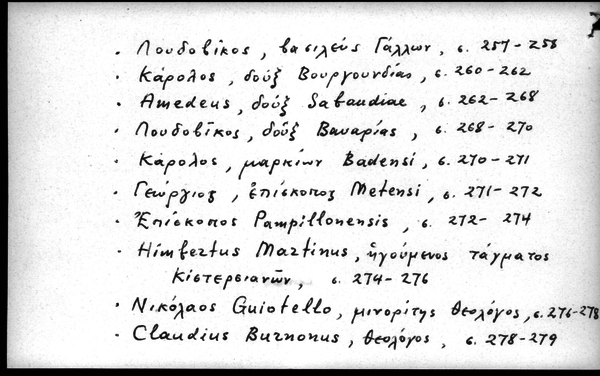 · Λουδοβῖκος, βασιλεύς Γάλλων, σ. 257-258
· Κάρολος, δούξ Βουργουνδίας, σ. 260-262
· Amedeus, δούξ Sabaudiae, σ. 262-268
· Λουδοβῖκος, δοῦξ Βαυαρίας, σ. 268-270
· Κάρολος, μαρκίων Badensi, σ. 270-271
· Γεώργιος, ἐπίσκοπος Metensi, σ. 271-272
· Ἐπίσκοπος Pampillonensis, σ. 272-274
· Himbertus Martinus, ἡγούμενος τάγματος
Κιστερσιανῶν, σ. 274-276
· Νικόλαος Guiotello, μινορίτης θεολόγος, σ. 276-278
· Claudius Burnonus, θεολόγος, σ. 278-279